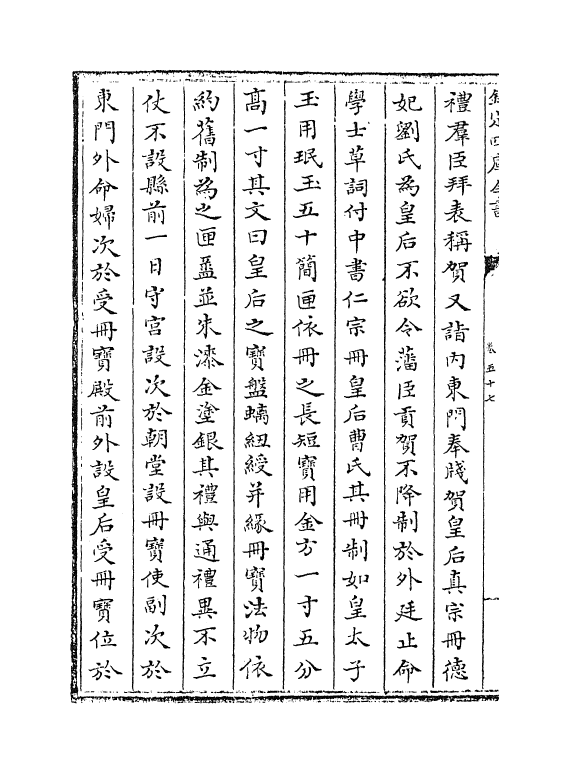 欽定四庫全書
卷五十七
禮羣臣拜表稱賀又詣內東門奉牋賀皇后真宗冊德
妃劉氏為皇后不欲令藩臣貢賀不降制於外廷止命
學士草詞付中書仁宗冊皇后曹氏其冊制如皇太子
玉用珉玉五十簡匣依冊之長短寶用金方一寸五分
髙一寸其文曰皇后之寶盤螭紐綬并縁冊寶法物依
約舊制為之匣盝並朱漆金塗銀其禮與通禮異不立
仗不設縣前一日守宮設次於朝堂設冊寶使副次於
東門外命婦次於受冊寶殿前外設皇后受冊寶位於